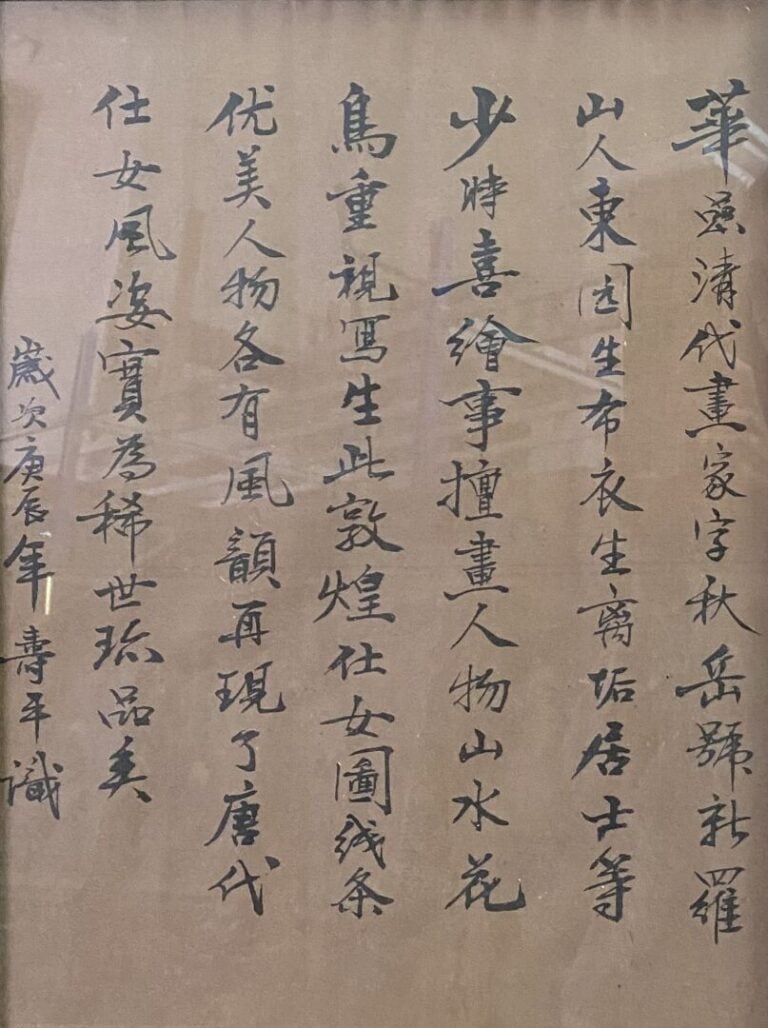 華喦清代畫家字秋岳號新羅
山人東园生布衣生离垢居士等
少時喜繪事擅畫人物山水花
鳥重視寫生此敦煌仕女圖线条
优美人物各有風韻再現了唐代
仕女風姿實為稀世珎品矣
歲次庚辰年壽平識